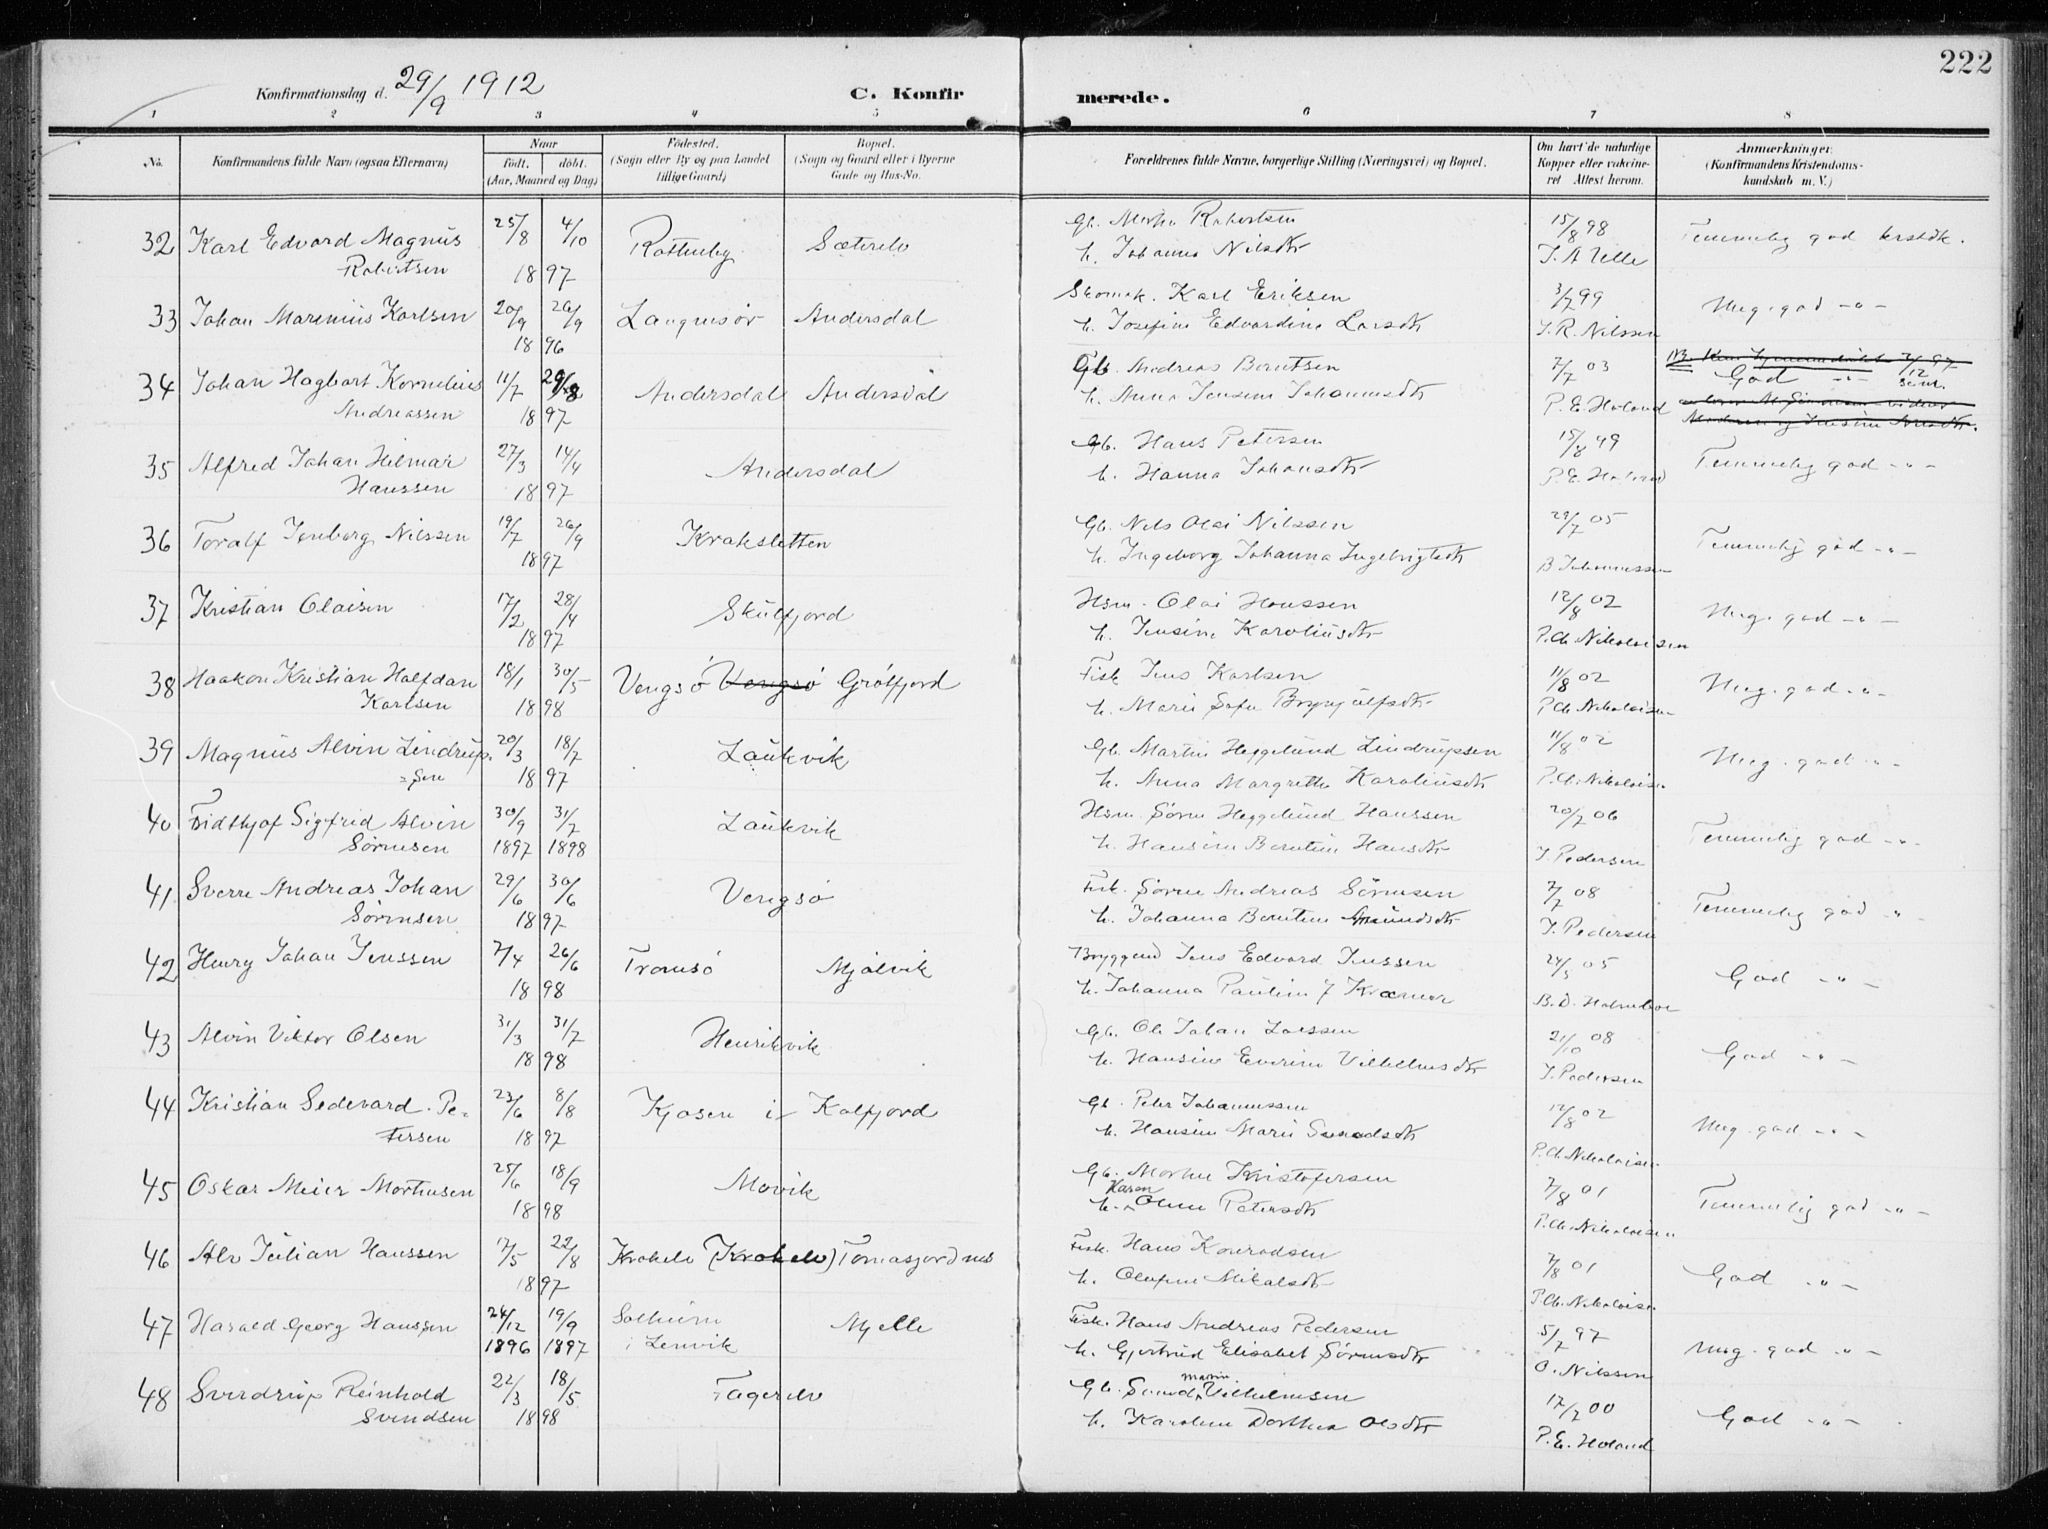 222
Konfirmationsdag d. 29/9 1912
C. Konfirmerede.
1 2 3 4 5 6 7 8
No. Konfirmandens fulde Navn (ogsaa Efternavn) Naar født. døbt. (Aar, Maaned og Dag) Fødested. (Sogn eller By og paa Landet tillige Gaard) Bopæl. (Sogn og Gaard eller i Byerne Gade og Hus-No. Forældrenes fulde Navne, borgerlige Stilling (Næringsvei) og Bopæl. Om havt de naturlige Kopper eller vakcineret Attest herom. Anmærkninger. (Konfirmandens Kristendomskundskab m. V.)
32 Karl Edvard Magnus 25/8 4/10 Sæterelv Gb. Robertsen 15/8 98 Temmelig god krstdk.
Robertsen 18 97 h. Johanna Nilsdtr J. A. Ulle
33 Johan Marenius Karlsen 20/9 26/9 Langnesør Andersdal Skomak. Karl Eriksen 3/7 99 Meg. god -"-
18 96 h. Josefine Edvardine Larsdtr J. R. Nilssen
34 Johan Hagbart Kornelius 11/7 Andersdal Andersdal Gb. Andreas Berntsen 7/7 03 God -"-
Andreassen 18 97 h. Anna Jensine Johannesdtr P. E. Holand
35 Alfred Johan Hilmar 27/3 14/4 Andersdal Gb. Hans Petersen 15/8 49 Temmelig god -"-
Hanssen 18 97 h. Hanna Johansdtr P. E. Holand
36 Toralf Ingeborg Nilssen 19/7 26/9 Kraksletten Gb. Nils Olai Nilssen 29/7 05 Temmelig god -"-
18 97 h. Ingeborg Johanna Ingebrigtsdtr B Johannessen
37 Kristian Olaisen 17/2 28/4 Skulfjord Hsm. Olai Hanssen 12/8 02 Meg. god -"-
18 97 h. Jensine Karoliusdtr P. Ch. Nikolaisen
38 Haakon Kristian Halfdan 18/1 30/5 Vengsø Vengsø Grøtfjord Fisk Jens Karlsen 11/8 02 Meg. god -"-
Karlsen 18 98 h. Marie Sofie Brynjulfsdtr P. Ch. Nikolaisen
39 Magnus Alvin Lindrup- 20/3 18/7 Laukvik Gb. Martin Heggelund Lindrupsen 11/8 02 Meg. god -"-
sen 18 97 h. Anna Margrethe Karoliusdtr P. Ch. Nikolaisen
40 Fridthjof Sigfrid Alvin 30/9 31/7 Laukvik Hsm. Søren Heggelund Hanssen 20/7 06 Temmelig god -"-
Sørensen 1897 1898 h. Hansine Berntine Hansdtr J. Pedersen
41 Sverre Andreas Johan 29/6 30/6 Vengsø Fisk. Søren Andreas Sørensen 7/7 08 Temmelig god -"-
Sørensen 18 97 h. Johanna Berntine Amundsdtr J. Pedersen
42 Henry Johan Jenssen 7/4 26/6 Tromsø Mjølvik Bryggem. Jens Edvard Jenssen 24/5 05 God -"-
18 98 h. Johanna Pauline f. Kræmer B. D. Holmboe
43 Alvin Viktor Olsen 31/3 31/7 Henrikvik Gb. Ole Johan Larssen 21/10 08 God -"-
18 98 h. Hansine Everine Vilhelmsdtr J. Pedersen
44 Kristian Sedevard Pe- 23/6 8/8 Kjosen i Kalfjord Gb. Peder Johannessen 12/8 02 Meg. god -"-
tersen 18 97 h. Hansine Marie P. Ch. Nikolaisen
45 Oskar Meier Mortensen 25/6 18/9 Movik Gb. Morten Kristofersen 7/8 01 Temmelig god -"-
18 98 h. Karen Oline Petersdtr P. Ch. Nikolaisen
46 Alv Julian Hanssen 17/5 22/8 Krokelv (Krokelv) Tomasjordnes Fisk. Hans Konradsen 7/8 01 God -"-
18 97 h. Olufine Mikalsdtr P. Ch. Nikolaisen
47 Harald Georg Hanssen 24/12 19/9 Solheim Mjelle Fisk. Hans Andreas Pedersen 5/7 97 Meg. god -"-
1896 1897 i Lenvik h. Gjertrud Elisabet Sørensdtr O. Nilssen
48 Sverdrup Reinhold 22/3 18/5 Fagerelv Gb. Svend Martin Vilhelmsen 17/7 00 God -"-
Svendsen 18 98 h. Karoline Dorthea Olsdtr P. E. Holand